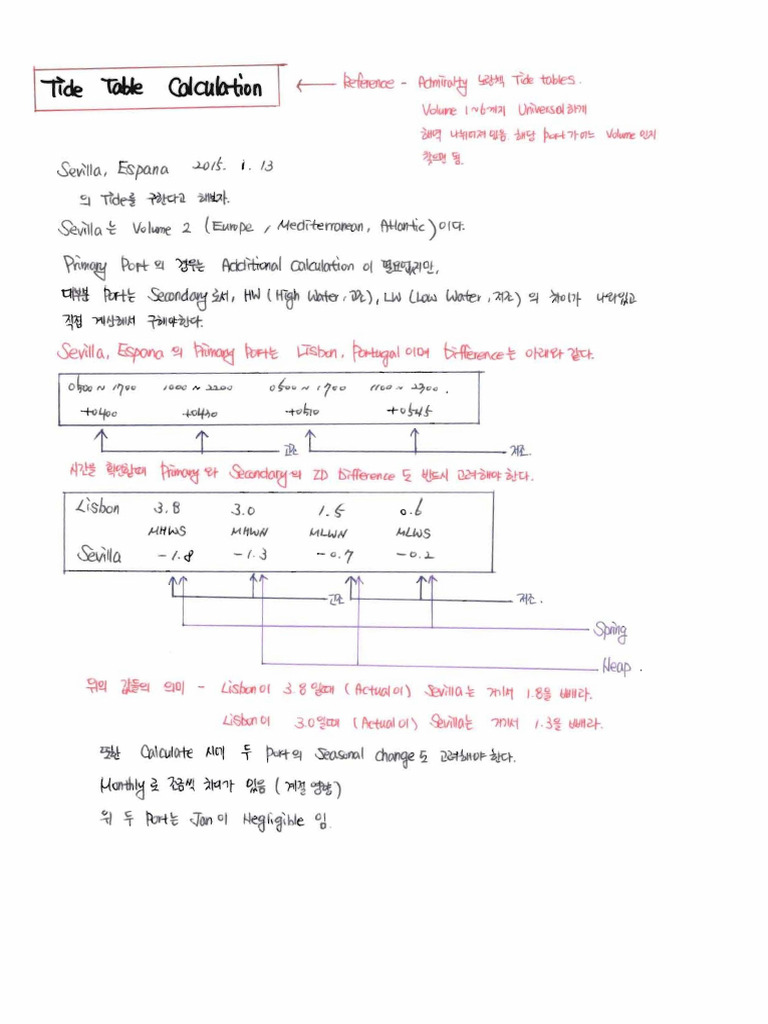 Tide Table Calculation
Reference - Admiralty 노란책 Tide tables.
Volume 1~6까지 Universal하게
해역 나뉘어져 있음 해당 port가 어느 Volume 인지
찾으면 됨.
Sevilla, Espana 2015. 1. 13
의 Tide를 구한다고 해보자.
Sevilla는 Volume 2 (Europe, Mediterranean, Atlantic)이다.
Primary Port의 경우는 Additional Calculation이 필요없지만,
대부분 Port는 Secondary로서, HW (High Water, 고조), LW (Low Water, 저조)의 차이가 나와있고
직접 계산해서 구해야한다.
Sevilla, Espana의 Primary Port는 Lisbon, Portugal이며 Difference는 아래와 같다.
0500~1700 1000~2200 0500~1700 1100~2300.
+0400 +0430 +0510 +0545
고조 저조.
시간을 확인할때 Primary와 Secondary의 ZD Difference도 반드시 고려해야 한다.
Lisbon 3.8 3.0 1.5 0.6
MHWS MHWN MLWN MLWS
Sevilla -1.8 -1.3 -0.7 -0.2
고조 저조.
Spring
Neap.
위의 값들의 의미 - Lisbon이 3.8일때 (Actual이) Sevilla는 거기서 1.8을 빼라.
Lisbon이 3.0일때 (Actual이) Sevilla는 거기서 1.3을 빼라.
또한 Calculate 시에 두 Port의 Seasonal change도 고려해야 한다.
Monthly로 조금씩 차이가 있음 (계절 영향)
위 두 Port는 Jan이 Negligible 임.